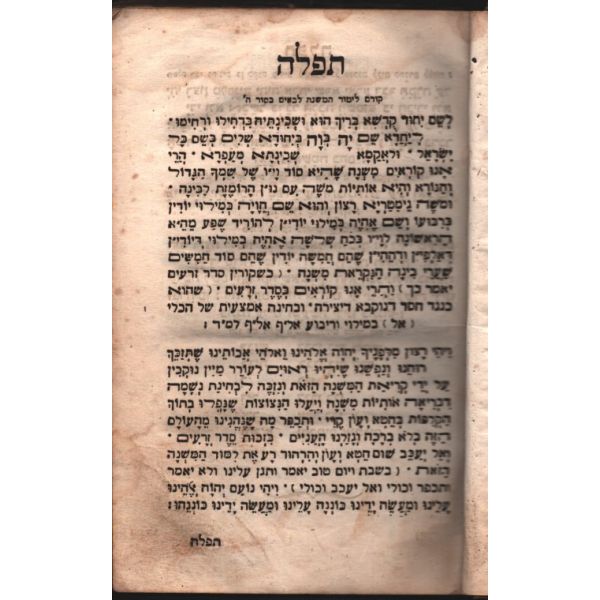 תפלה
קודם לימוד המשנה לבאים בסוד ה'
לְשֵׁם יִחוּד קֻדְשָׁא בְּרִיךְ הוּא וּשְׁכִינְתֵּיהּ בִּדְחִילוּ וּרְחִימוּ
לְיַחֲדָא שֵׁם יָהּ בְּוָה בְּיִחוּדָא שְׁלִים בְּשֵׁם כָּל
יִשְׂרָאֵל · וּלְאַקָמָא שְׁכִינְתָּא מֵעַפְרָא · הֲרֵי
אָנוּ קוֹרְאִים מִשְׁנָה שֶׁהִיא סוֹד וָי"ו שֶׁל שִׁמְךָ הַגָּדוֹל
וְהַנּוֹרָא וְהִיא אוֹתִיּוֹת מֹשֶׁה עִם נוּ"ן הָרוֹמֶזֶת לְבִינָה ·
וּמֹשֶׁה גִּימַטְרִיָּא רָצוֹן וְהוּא שֵׁם הֲוָיָה בְּמִילּוּי יוּדִי"ן
בְּרִבּוּעוֹ וְשֵׁם אֶהְיֶה בְּמִילּוּי יוּדִי"ן לְהוֹרִיד שֶׁפַע מֵהֵ"א
הָרִאשׁוֹנָה לְוָי"ו בְּכֹחַ שְׁלֹשָׁה אֶהְיֶה בְּמִילּוּי דְּיוּדִי"ן
דְּאַלְפִי"ן וּדְהֵהִי"ן שֶׁהֵם חֲמִשָּׁה יוּדִין שֶׁהֵם סוֹד חֲמִשִּׁים
שַׁעֲרֵי בִינָה הַנִּקְרֵאת מִשְׁנָה · (כשקורין סדר זרעים
יאמר כך) וַהֲרֵי אָנוּ קוֹרְאִים בְּסֵדֶר זְרָעִים · (שהוא
כנגד חסד דנוקבא דיצירת · ובחינה אמצעית של הכלי
(אל) במילוי וריבוע אל"ף אל"ף למ"ד :
וִיהִי רָצוֹן מִלְּפָנֶיךָ יְהֹוָה אֱלֹהֵינוּ וֵאלֹהֵי אֲבוֹתֵינוּ שֶׁתְּזַכֵּךְ
רוּחֵנוּ וְנַפְשֵׁנוּ שֶׁיִּהְיוּ רְאוּיִם לְעוֹרֵר מַיִּין נוּקְבִין
עַל יְדֵי קְרִיאַת הַמִּשְׁנָה הַזֹּאת וְנִזְכֶּה לִבְחִינַת נְשָׁמָה
דִּבְרִיאָה אוֹתִיּוֹת מִשְׁנָה וְיַעֲלוּ הַנִּצוֹצוֹת שֶׁנָּפְלוּ בְּתוֹךְ
הַקְּלִפּוֹת בְּחֵטְא וְעָוֹן קֶרִי · וּתְכַפֵּר מַה שֶׁנֶּהֱנֵינוּ מֵהָעוֹלָם
הַזֶּה בְּלֹא בְרָכָה וְגָזַלְנוּ הָעֲנִיִּים · בִּזְכוּת סֵדֶר זְרָעִים ·
וְאַל יְעַכֵּב שׁוּם חֵטְא וְעָוֹן וְהִרְהוּר רַע אֶת לִמּוּד הַמִּשְׁנָה
הַזֹּאת · (בשבת ויום טוב יאמר ותגן עלינו ולא יאמר
ותכפר וכולי ואל יעכב וכולי) · וִיהִי נוֹעַם יְהֹוָה אֱלֹהֵינוּ
עָלֵינוּ וּמַעֲשֵׂה יָדֵינוּ כּוֹנְנָה עָלֵינוּ וּמַעֲשֵׂה יָדֵינוּ כּוֹנְנֵהוּ :
תפלה